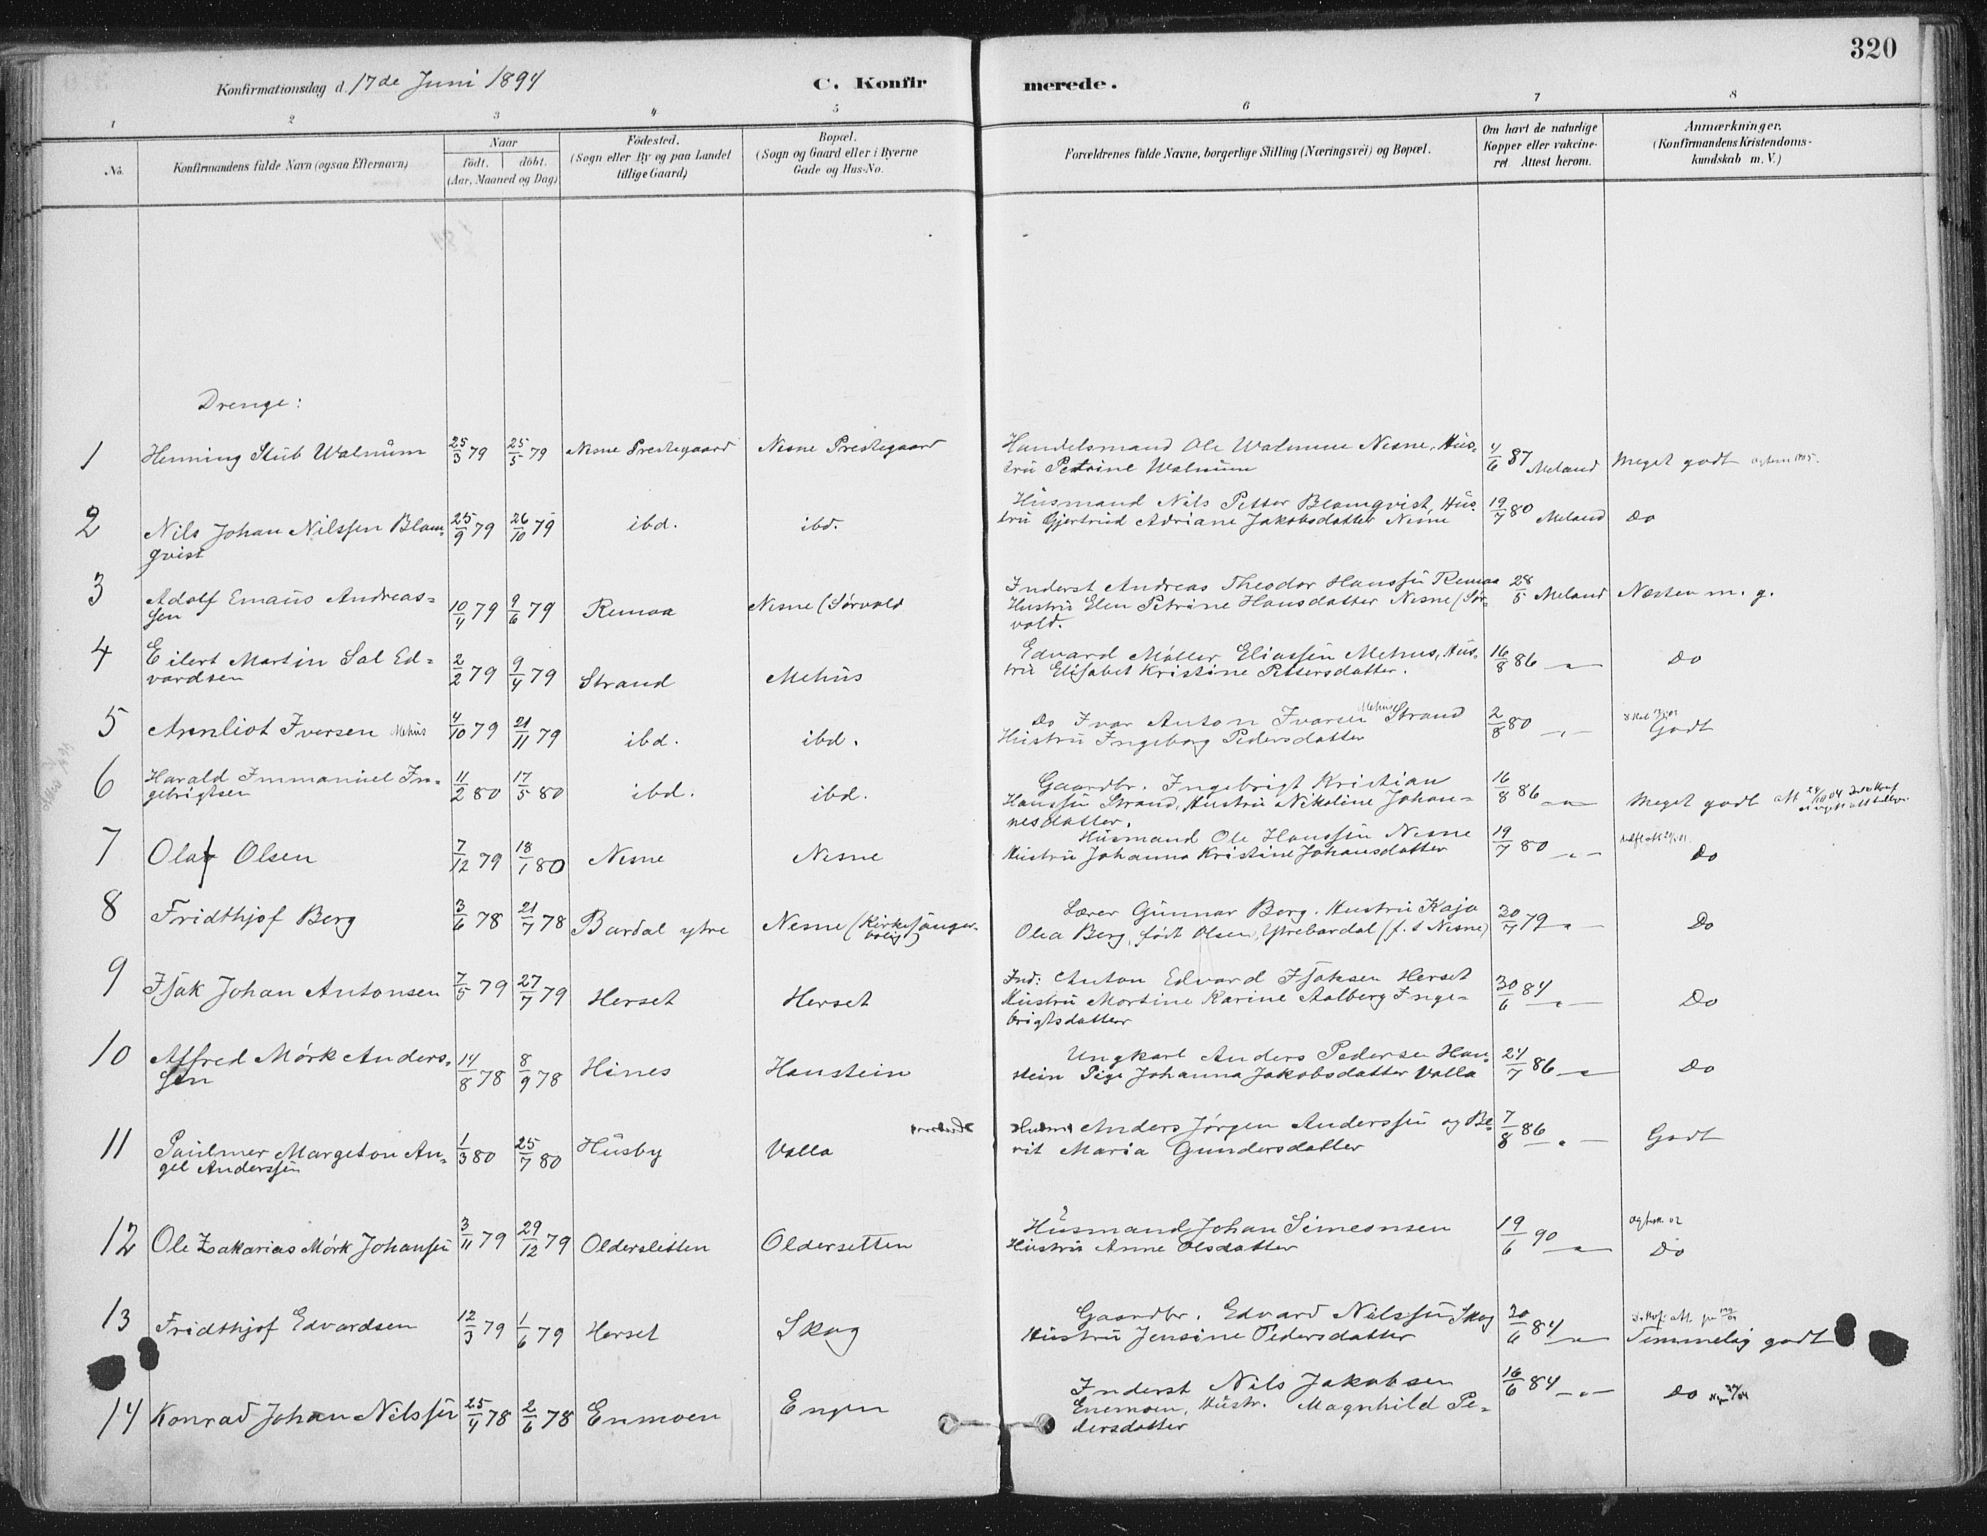 320
Konfirmationsdag d. 17de Juni 1894
C. Konfirmerede.
1 2 3 4 5 6 7 8
No.
Konfirmandens fulde Navn (ogsaa Efternavn)
Naar
födt. döbt.
(Aar, Maaned og Dag)
Födested.
(Sogn eller By og paa Landet
tillige Gaard)
Bopæl.
(Sogn og Gaard eller i Byerne
Gade og Hus-No.
Forældrenes fulde Navne, borgerlige Stilling (Næringsvei) og Bopæl.
Om havt de naturlige
Kopper eller vakcine-
ret. Attest herom.
Anmærkninger.
(Konfirmandens Kristendoms-
kundskab m. V.)
Drenge:
1 Henning Stub Walnum 25/3 79 25/5 79 Nesne Prestegaard Nesne Prestegaard
Handelsmand Ole Walnum Nesne, Hus-
tru Petrine Walnum 4/6 87 Meland Meget godt
2 Nils Johan Nilssen Blom-
qvist 25/9 79 26/10 79 ibd. ibd.
Husmand Nils Petter Blomqvist, Hus-
tru Gjertrud Adriane Jakobsdatter Nesne 19/7 80 Meland Do
3 Adolf Emaus Andreas-
sen 10/4 79 9/6 79 Remaa Nesne (Sørvold
Inderst Andreas Theodor Hanssen Remaa
Hustru Elen Petrine Hansdatter Nesne (Sør-
vold. 28/5 Meland Næsten m. g.
4 Eilert Martin Sal Ed-
vardsen 2/2 79 9/4 79 Strand Mehus
Edvard Møller Eliassen Mehus, Hus-
tru Elisabet Kristine Pettersdatter. 16/8 86 — " — Do
5 Arnliot Iversen Mehus 4/10 79 21/11 79 ibd. ibd.
Do Ivar Anton Ivarsen Mehus Strand
Hustru Ingeborg Pedersdatter 2/8 80 — " — Godt
6 Harald Immanuel In-
gebrigtsen 11/2 80 17/5 80 ibd. ibd.
Gaardbr. Ingebrigt Kristian
Hanssen Strand, Hustru Nikoline Johan-
nesdatter. 16/8 86 — " — Meget godt
7 Olaf Olsen 7/12 79 18/1 80 Nesne Nesne
Husmand Ole Hanssen Nesne
Hustru Johanna Kristine Johansdatter 19/7 80 — " — Do
8 Fridthjof Berg 3/6 78 21/7 78 Bardal ytre Nesne (Kirkesanger-
bolig)
Lærer Gunnar Berg. Hustru Kaja
Olea Berg, født Olsen, Ytrebardal (f. t Nesne) 79 " — Do
9 Isak Johan Antonsen 7/5 79 27/7 79 Herset Herset
Ind: Anton Edvard Isaksen Herset
Hustru Martine Karine Aalberg Inge-
brigtsdatter 30/6 84 — " — Do
10 Alfred Mørk Anders-
sen 14/8 78 8/9 78 Hines Haustein
Ungkarl Anders Pedersen Hau-
stein Pige Johanna Jakobsdatter Valla 24/7 86 — " Do
11 Paulmer Margeton An-
gel Anderssen 1/3 80 25/7 80 Husby Valla
Anders Jørgen Anderssen og Be-
rit Maria Gundersdatter 7/8 86 — " — Godt
12 Ole Zakarias Mørk Johansen 3/11 79 29/12 79 Oldersletten Oldersetten
Husmand Johan Simeonsen
Hustru Anne Olsdatter 19/6 90 — " — Do
13 Fridthjof Edvardsen 12/3 79 1/6 79 Herset Skog
Gaardbr. Edvard Nilssen Skog
Hustru Jensine Pedersdatter 20/6 84 — " — Temmelig godt
14 Konrad Johan Nilssen 25/4 78 2/6 78 Enmoen Engen
Inderst Nils Jakobsen
Enemoen, Hustr. Magnhild Pe-
dersdatter 16/6 84 — " — Do